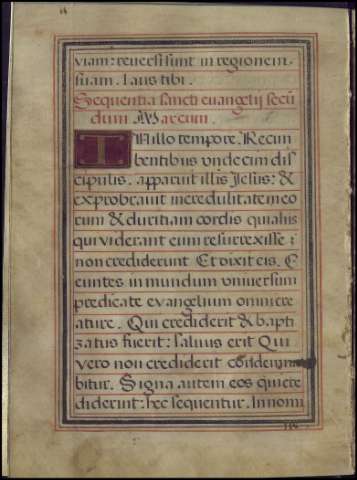 viam: reversi sunt in regionem
suam. Laus tibi.
Sequentia sancti evangelij secū
dum Marcum.
IN illo tempore. Recum
bentibus undecim dis
cipulis. apparuit illis Jesus: &
exprobravit incredulitatem eo
rum & duritiam cordis quia his
qui viderant eum resurrexisse:
non crediderunt Et dixit eis. E
euntes in mundum universum
predicate evangelium omni cre
ature. Qui crediderit & bapti
zatus fuerit: salvus erit Qui
vero non crediderit condemna
bitur. Signa autem eos qui cre
diderint: hec sequentur. In nomi